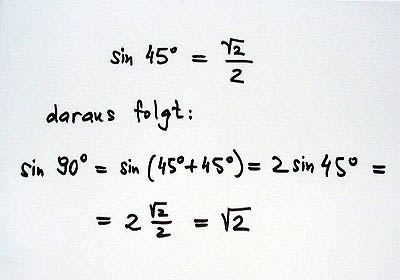 sin 45° = √2/2
daraus folgt:
sin 90° = sin (45°+45°) = 2 sin 45° =
= 2 √2/2 = √2